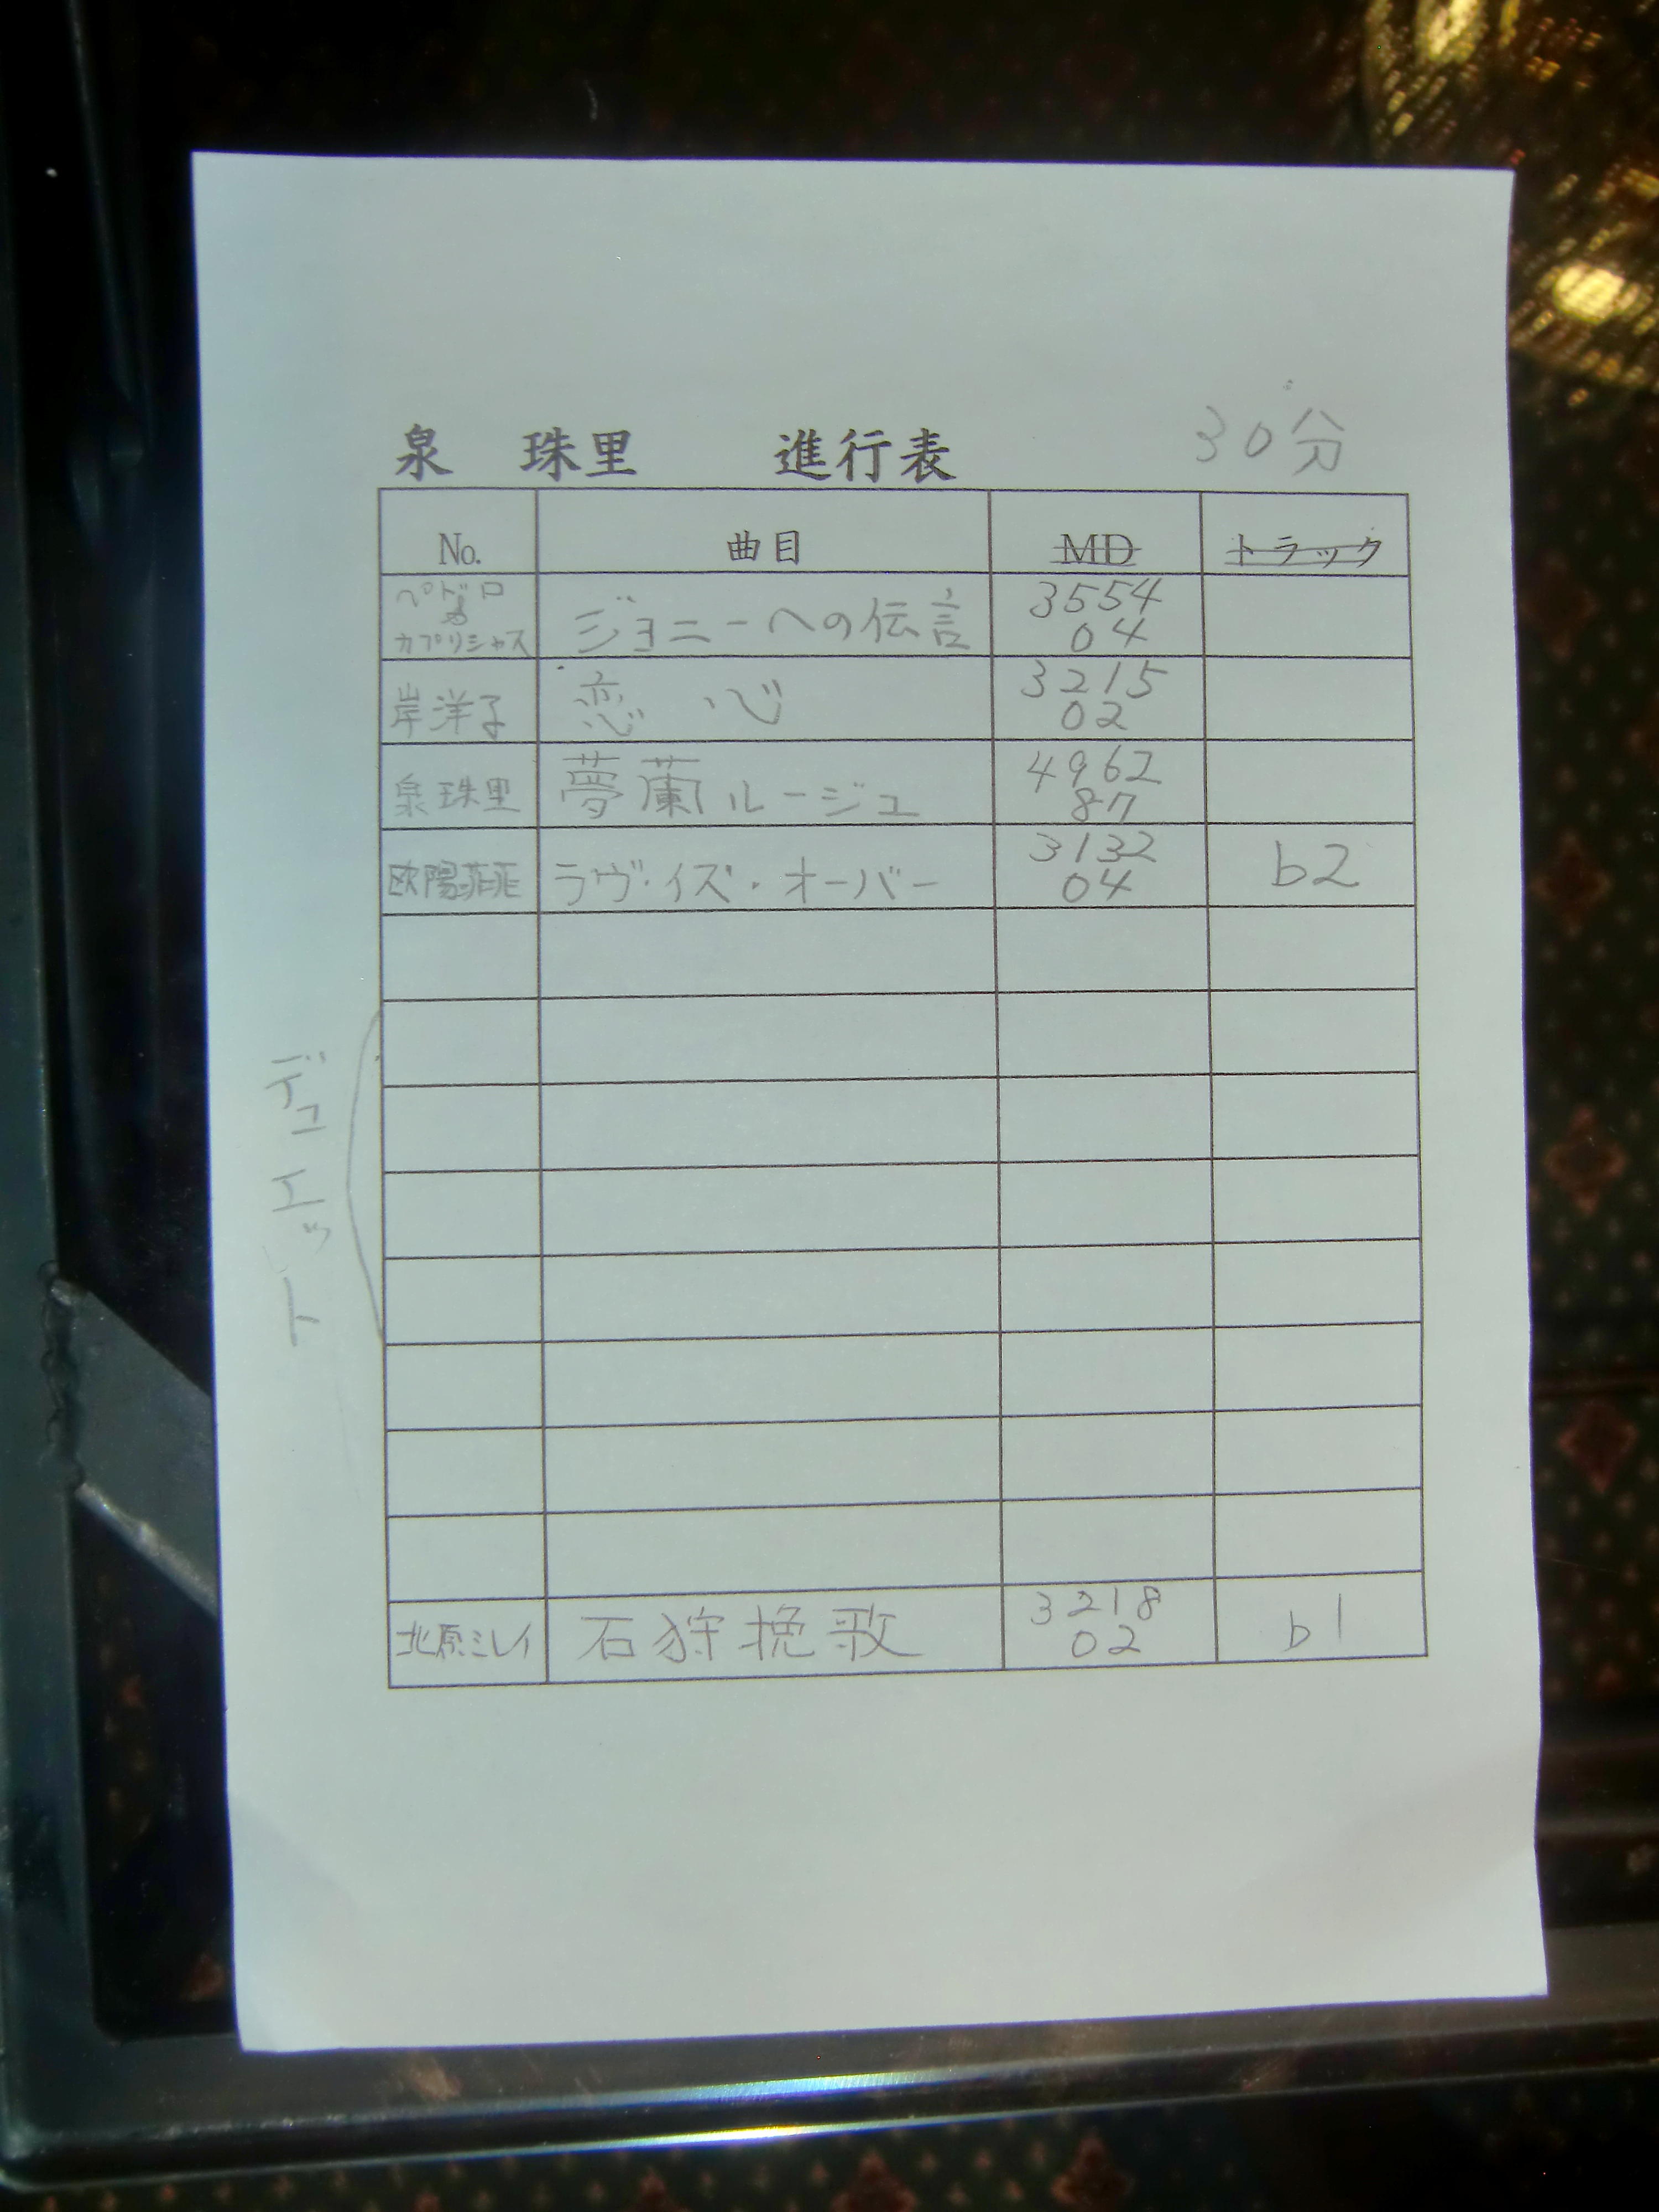 泉 珠里 進行表 30分
No. 曲目 MD トラック
ペドロ & カプリシャス ジョニーへの伝言 3554 04
岸洋子 恋心 3215 02
泉珠里 夢蘭ルージュ 4962 87
欧陽菲菲 ラヴ・イズ・オーバー 3132 04 b2
デュエット
北原ミレイ 石狩挽歌 3218 02 b1